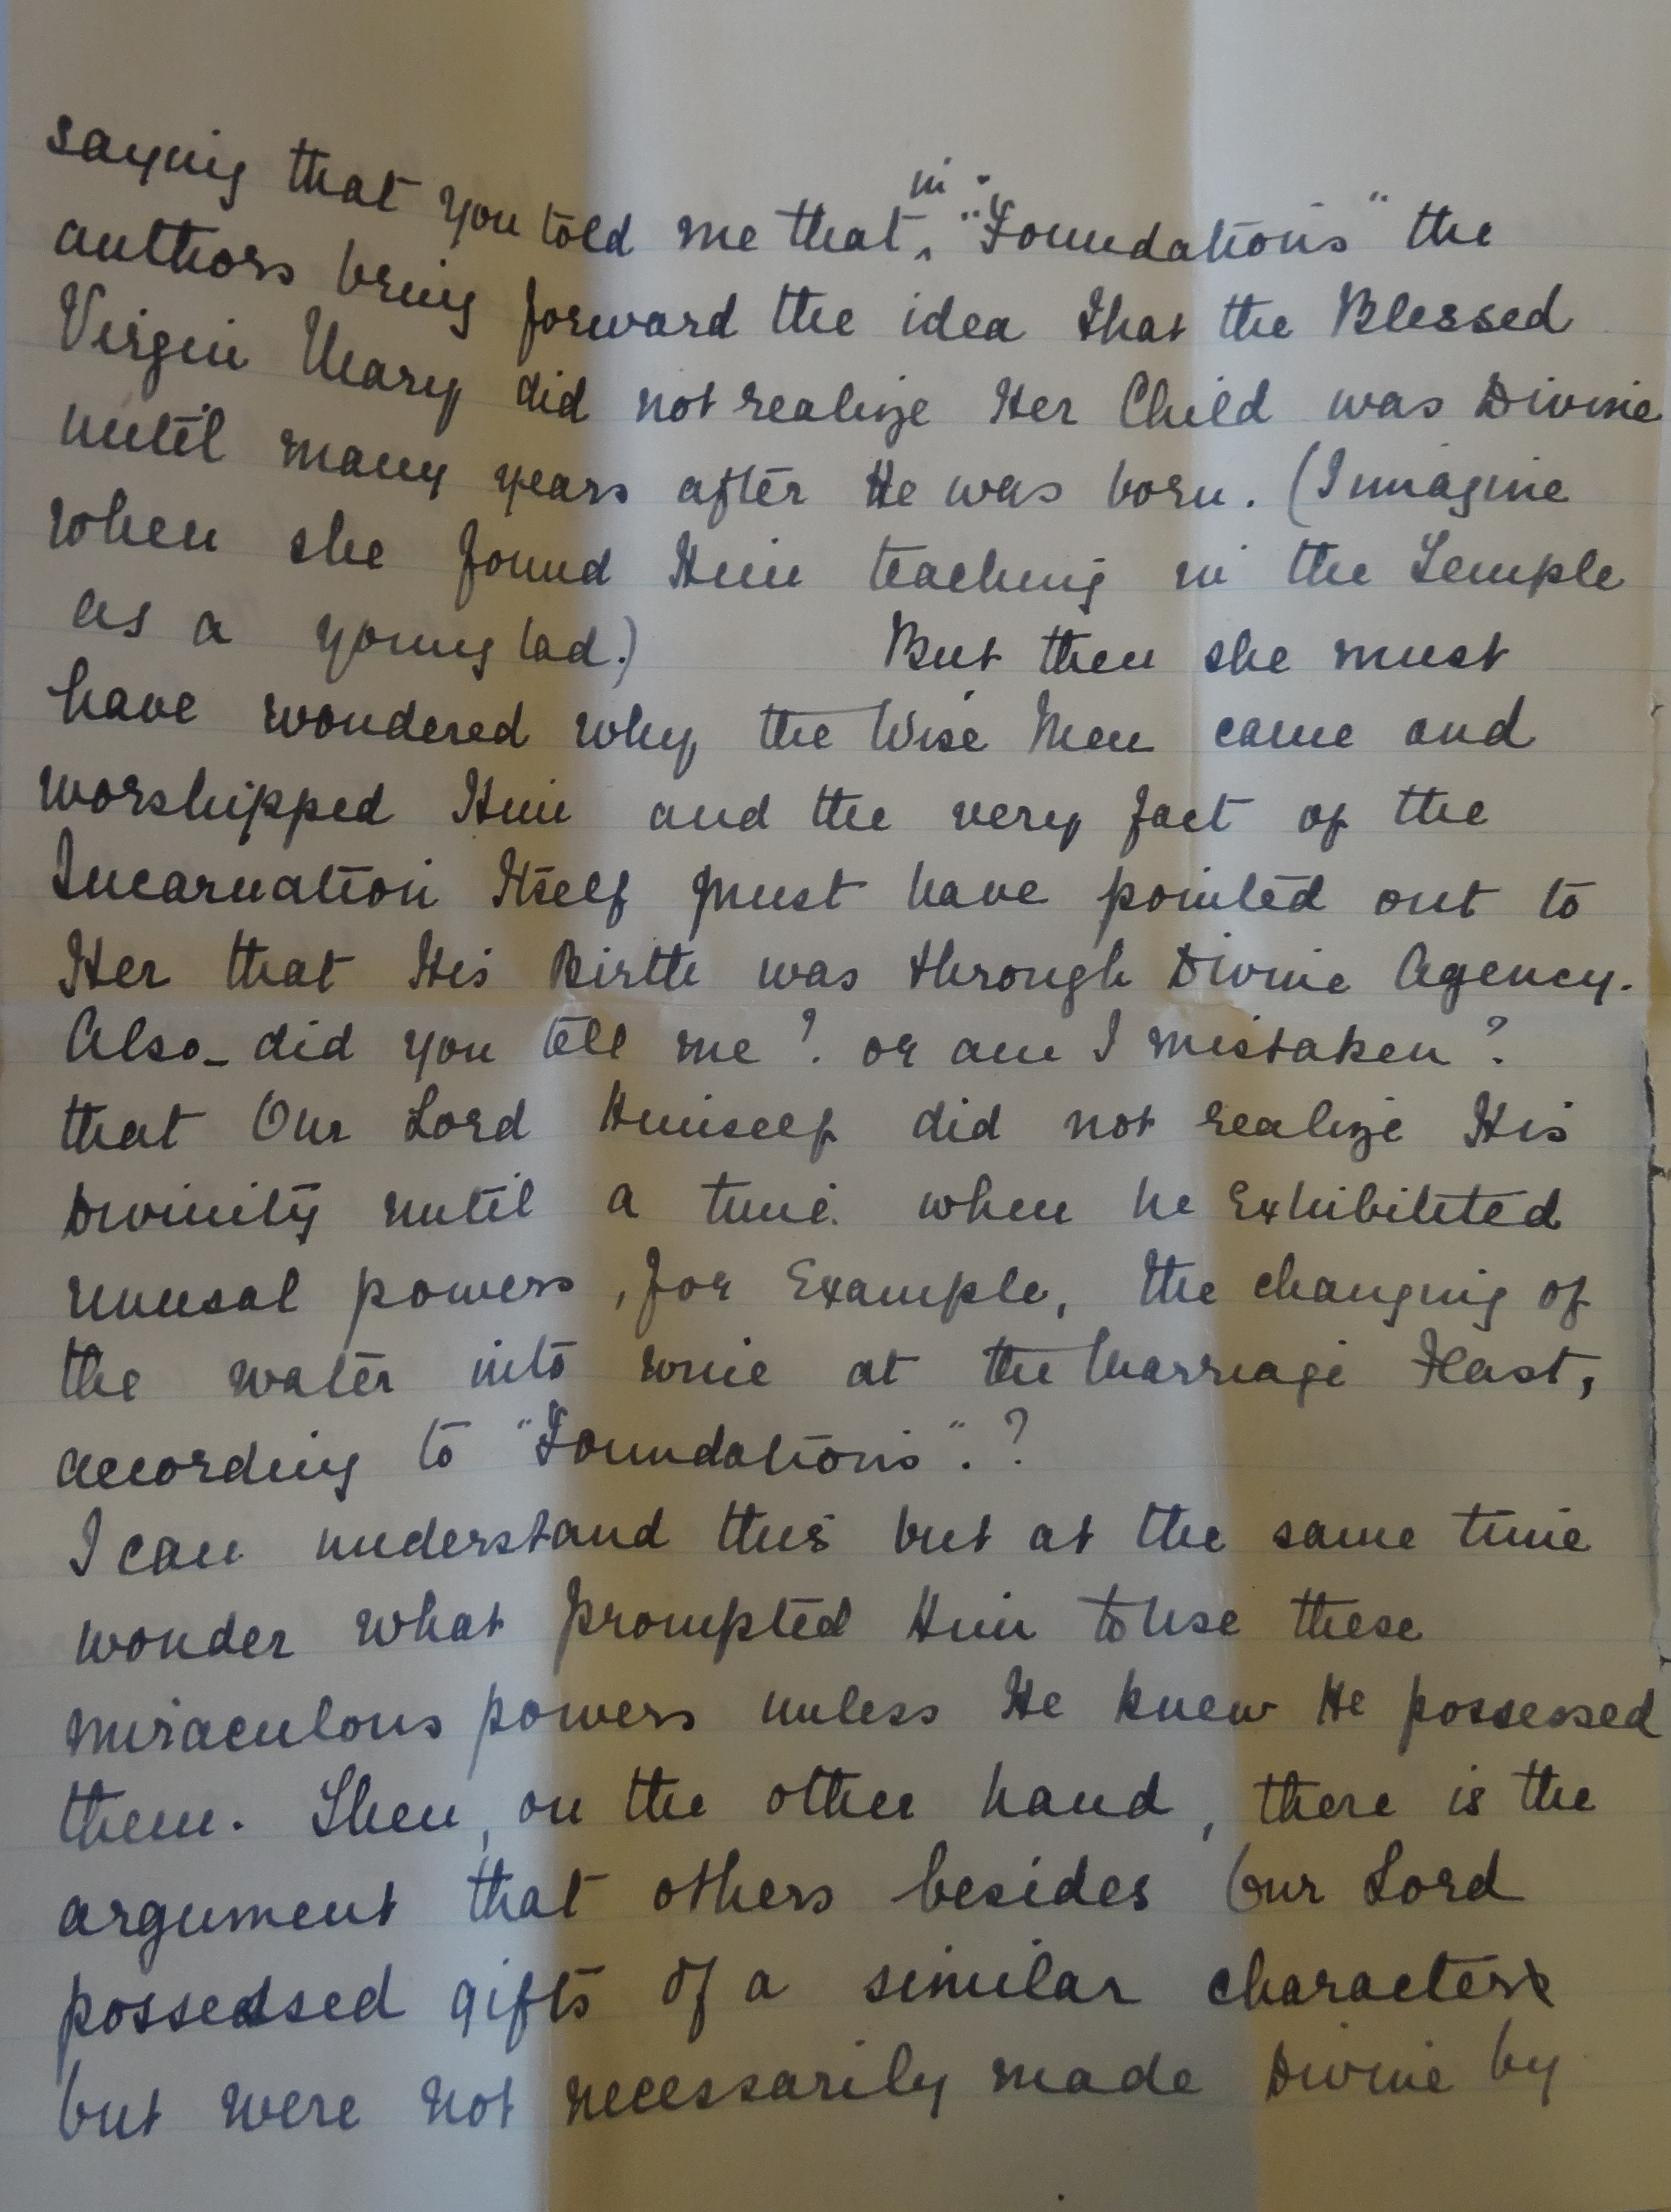 saying that you told me that ^in "Foundations" the
authors bring forward the idea that the Blessed
Virgin Mary did not realize Her Child was Divine
until many years after He was born. (Immagine
when she found Him teaching in the Temple
as a young lad.) But then she must
have wondered why the Wise Men came and
worshipped Him and the very fact of the
Incarnation Itself must have pointed out to
Her that His Birth was through Divine Agency.
Also - did you tell me? or am I mistaken?
that Our Lord Himself did not realize His
Divinity until a time when he exhibiteted
unusal powers, for Example, the changing of
the water into wine at the Marriage Feast,
according to "Foundations".?
I can understand this but at the same time
wonder what prompted Him to use these
miraculous powers unless He knew He possessed
them. Then, on the other hand, there is the
argument that others besides Our Lord
possedsed gifts of a similar character
but were not necessarily made Divine by